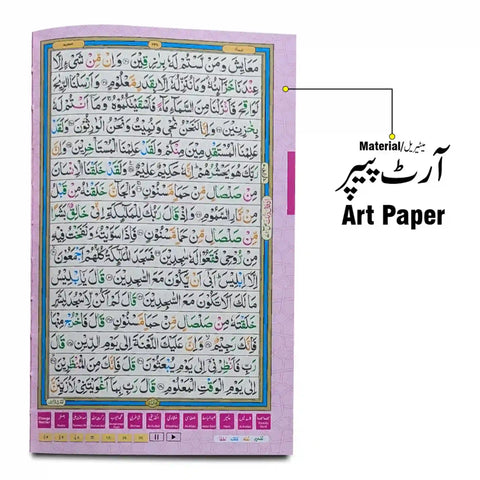 مَعَايِشَ وَمَنْ لَّسْتُمْ لَهٗ بِرٰزِقِيْنَ ۝ وَاِنْ مِّنْ شَيْءٍ اِلَّا
عِنْدَنَا خَزَآئِنُهٗ وَمَا نُنَزِّلُهٗٓ اِلَّا بِقَدَرٍ مَّعْلُوْمٍ ۝ وَاَرْسَلْنَا الرِّيٰحَ
لَوَاقِحَ فَاَنْزَلْنَا مِنَ السَّمَآءِ مَآءً فَاَسْقَيْنٰكُمُوْهُ وَمَآ اَنْتُمْ لَهٗ
بِخٰزِنِيْنَ ۝ وَاِنَّا لَنَحْنُ نُحْيٖ وَنُمِيْتُ وَنَحْنُ الْوٰرِثُوْنَ ۝ وَلَقَدْ
عَلِمْنَا الْمُسْتَقْدِمِيْنَ مِنْكُمْ وَلَقَدْ عَلِمْنَا الْمُسْتَاْخِرِيْنَ ۝ وَاِنَّ
رَبَّكَ هُوَ يَحْشُرُهُمْ اِنَّهٗ حَكِيْمٌ عَلِيْمٌ ۝ وَلَقَدْ خَلَقْنَا الْاِنْسَانَ
مِنْ صَلْصَالٍ مِّنْ حَمَاٍ مَّسْنُوْنٍ ۝ وَالْجَآنَّ خَلَقْنٰهُ مِنْ قَبْلُ
مِنْ نَّارِ السَّمُوْمِ ۝ وَاِذْ قَالَ رَبُّكَ لِلْمَلٰٓئِكَةِ اِنِّيْ خَالِقٌ بَشَرًا
مِّنْ صَلْصَالٍ مِّنْ حَمَاٍ مَّسْنُوْنٍ ۝ فَاِذَا سَوَّيْتُهٗ وَنَفَخْتُ فِيْهِ
مِنْ رُّوْحِيْ فَقَعُوْا لَهٗ سٰجِدِيْنَ ۝ فَسَجَدَ الْمَلٰٓئِكَةُ كُلُّهُمْ اَجْمَعُوْنَ ۝
اِلَّآ اِبْلِيْسَ اَبٰٓى اَنْ يَّكُوْنَ مَعَ السّٰجِدِيْنَ ۝ قَالَ يٰٓاِبْلِيْسُ
مَا لَكَ اَلَّا تَكُوْنَ مَعَ السّٰجِدِيْنَ ۝ قَالَ لَمْ اَكُنْ لِّاَسْجُدَ لِبَشَرٍ
خَلَقْتَهٗ مِنْ صَلْصَالٍ مِّنْ حَمَاٍ مَّسْنُوْنٍ ۝ قَالَ فَاخْرُجْ مِنْهَا
فَاِنَّكَ رَجِيْمٌ ۝ وَّاِنَّ عَلَيْكَ اللَّعْنَةَ اِلٰى يَوْمِ الدِّيْنِ ۝ قَالَ
رَبِّ فَاَنْظِرْنِيْٓ اِلٰى يَوْمِ يُبْعَثُوْنَ ۝ قَالَ فَاِنَّكَ مِنَ الْمُنْظَرِيْنَ ۝
اِلٰى يَوْمِ الْوَقْتِ الْمَعْلُوْمِ ۝ قَالَ رَبِّ بِمَآ اَغْوَيْتَنِيْ لَاُزَيِّنَنَّ
Material/میٹیریل
آرٹ پیپر
Art Paper